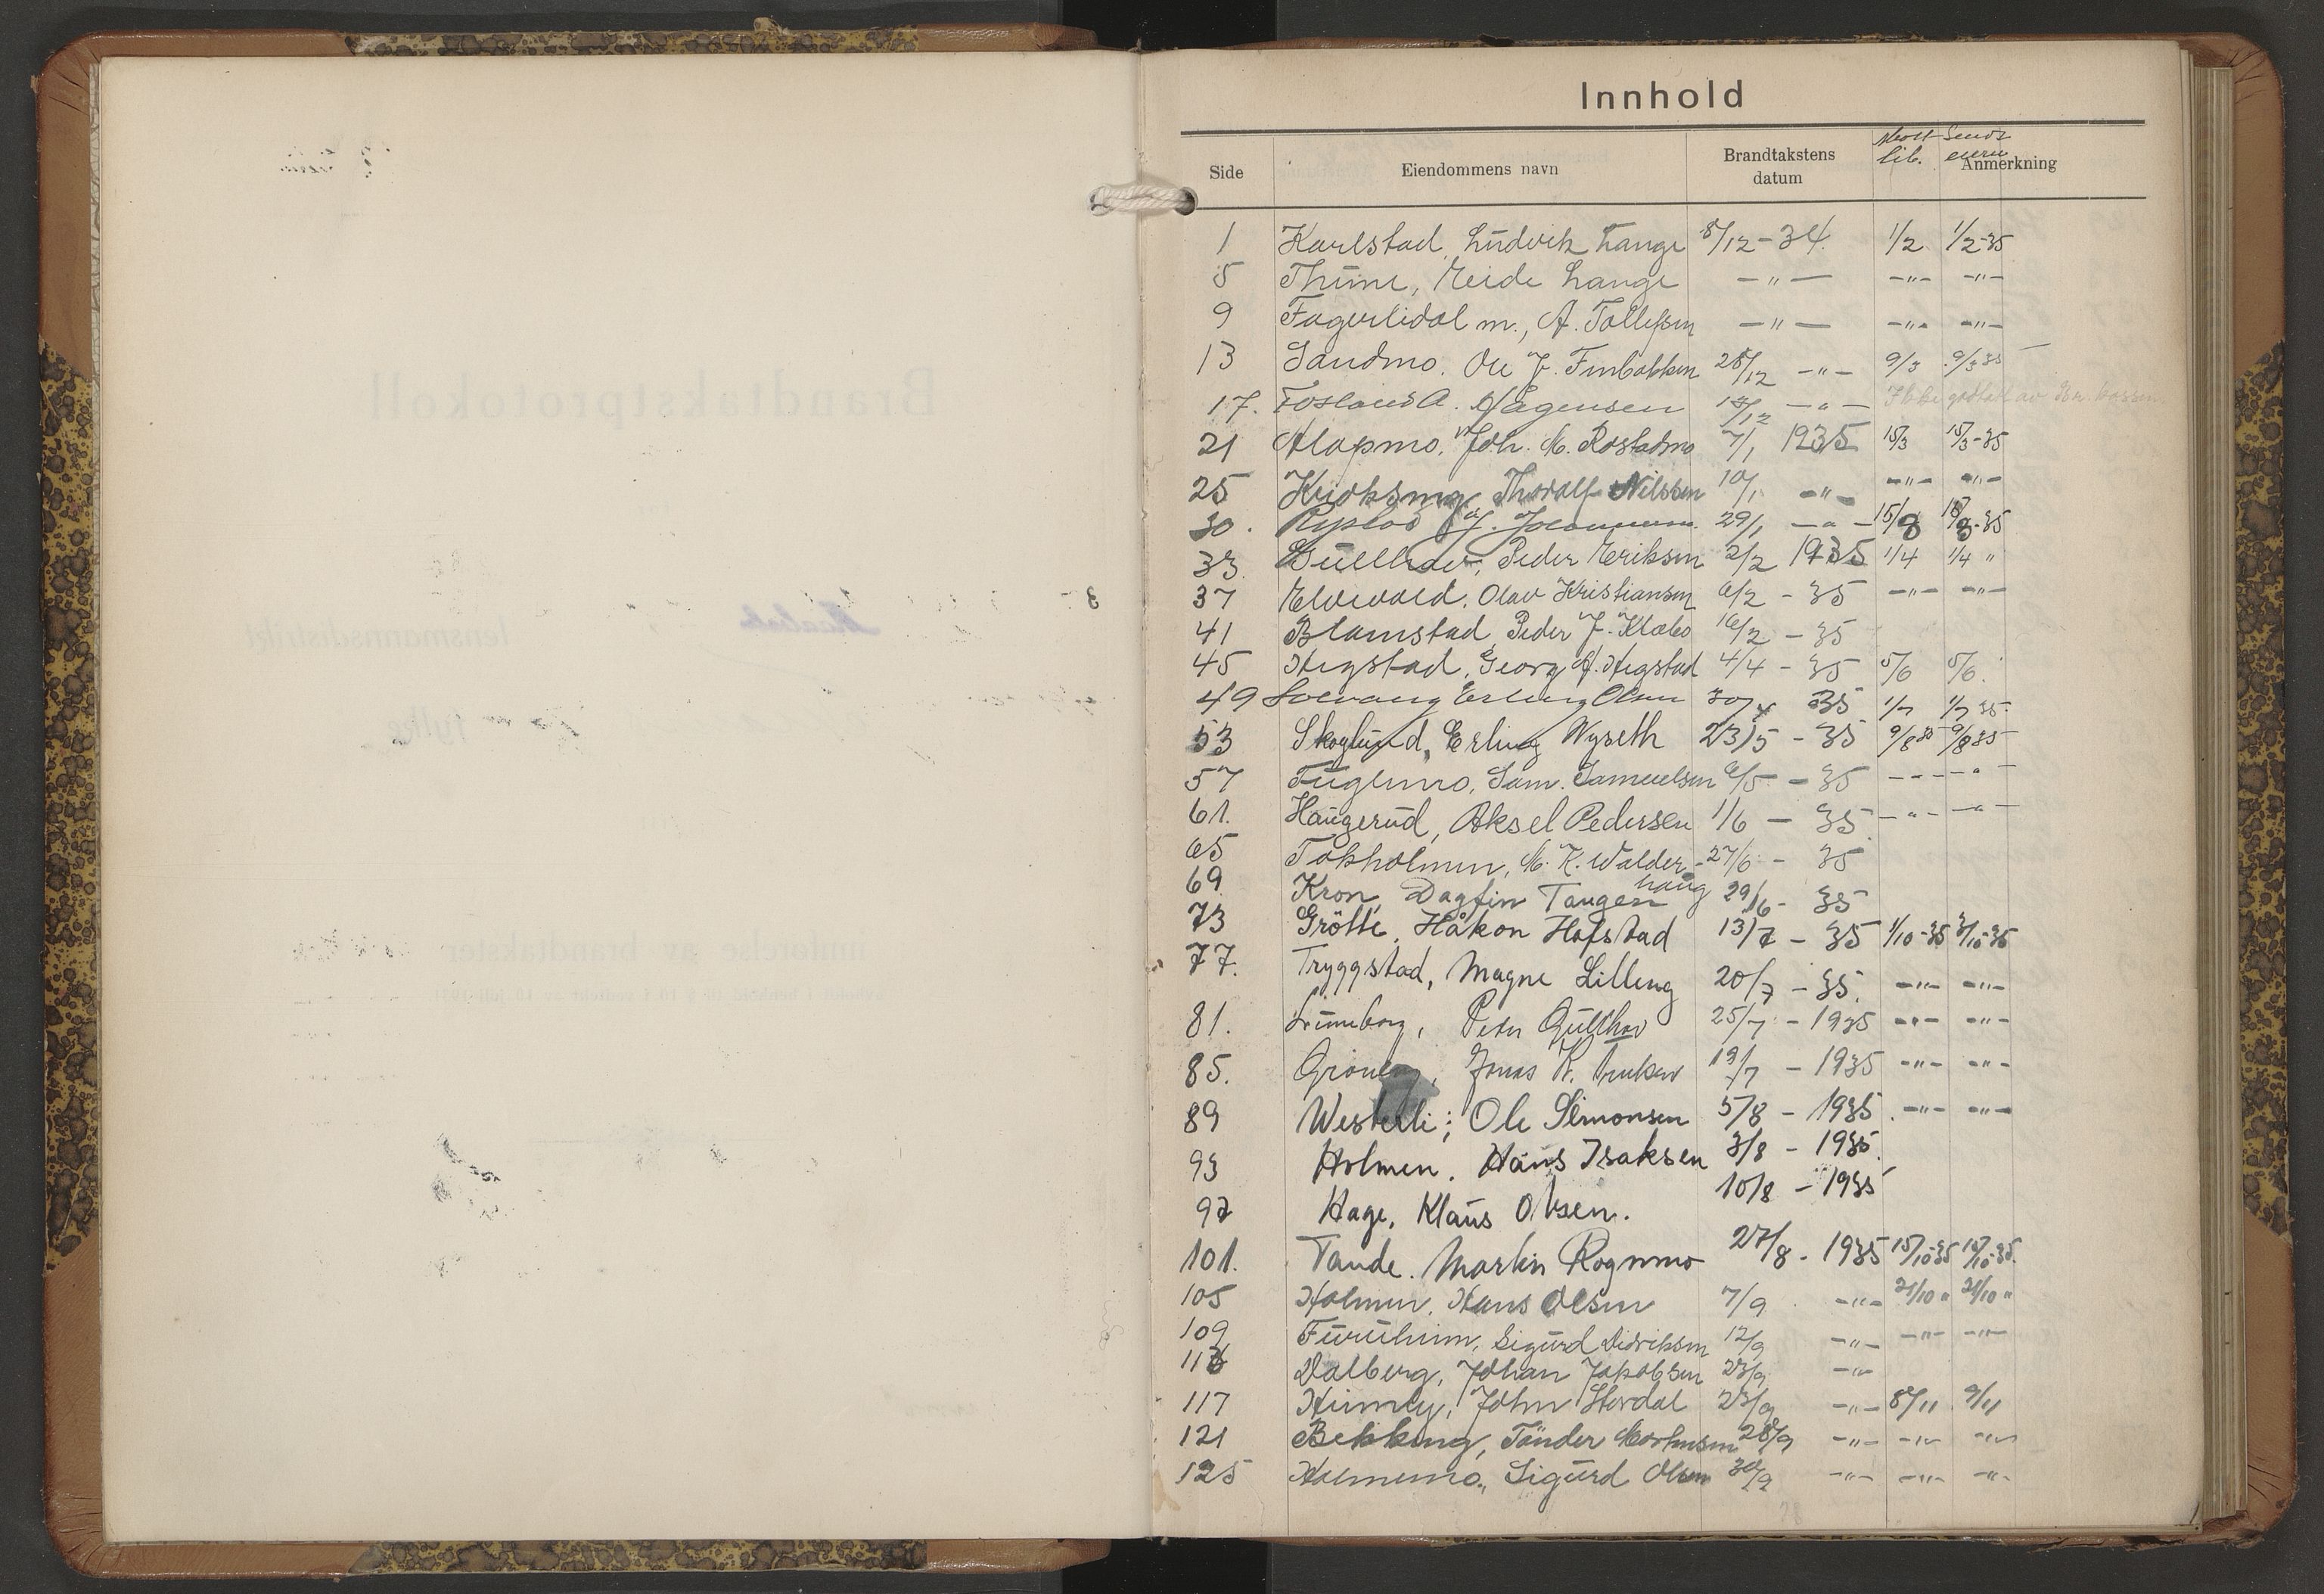 Innhold
Side Eiendommens navn Brandtakstens datum lib. Sendt Anmerkning
1 Karlstad, Ludvik Lange 8/12-34. 1/2 1/2-35
5 Thune, Reide Lange -"- -"- -"-
9 Fagerlidal m., A. Tollefsen -"- -"- -"-
13 Sandmo. Ole J. Finbakken 28/12 -"- 9/3 9/3 35
17. Fosland A. Mågensen -"- Ikke godtatt av
21 Alapmo. Joh. M. Rostadmo 7/1 1935 15/3 15/3-35
25 Thoralf Nilssen 10/1 -"- -"- -"-
30. 29/1 -"- 15/8 15/8-35
33. Gullhav, Peder Eriksen 2/2 1935 1/4 1/4 "
37 Elvevold. Olav Kristiansen 6/2 - 35 -"- -"-
41 Blamstad Peder J. Klæbo 16/2 - 35
45 Hegstad, Georg A. Hegstad 4/4 - 35 5/6 5/6.
49 Solvang Erling Olsen 30/4 35 1/7 1/7 35
53 Skoglund, Erling Nyseth 23/5 - 35 9/8 35 9/8 35
57 Fuglemo, Sam. Samuelsen 6/5 - 35 -"- -"-
61. Haugerud, Aksel Pedersen 1/6 - 35 -"- -"-
65 Tokholmen, M. K. Walder- 27/6 - 35
haug
69 Kron, Dagfin Tangen 29/6- 35
73 Grötte, Håkon Hofstad 13/7 - 35 1/10-35 3/10-35
77. Tryggstad, Magne Lilleng 20/7 - 35. -"- -"-
81. Luneborg, Peter Gullhav 25/7 - 1935 -"- -"-
85. Gröneng, Jonas K. 19/7 - 1935 -"- -"-
89 Westerli; Ole Simonsen 5/8 - 1935. -"- -"-
93 Holmen. Hans Isaksen 3/8 - 1935.
97 Hage, Klaus Olsen. 10/8 - 1935
101. Tande. Martin Rognmo 27/8 - 1935 15/10-35 15/10-35.
105 Holmen, Hans Olsen 7/9 -"- 21/10 " 21/10 "
109 Furuheim, Sigurd Didriksen 12/9 -"- -"- -"-
113 Dalberg, Johan Jakobsen 23/9 -"-
117 Heimly, John Stordal 23/9 -"- 8/11 9/11
121 Bekkeng, Tönder Mortensen 28/9 -"- -"- -"-
125 Holmemo, Sigurd Olsen 30/9 -"- -"- -"-